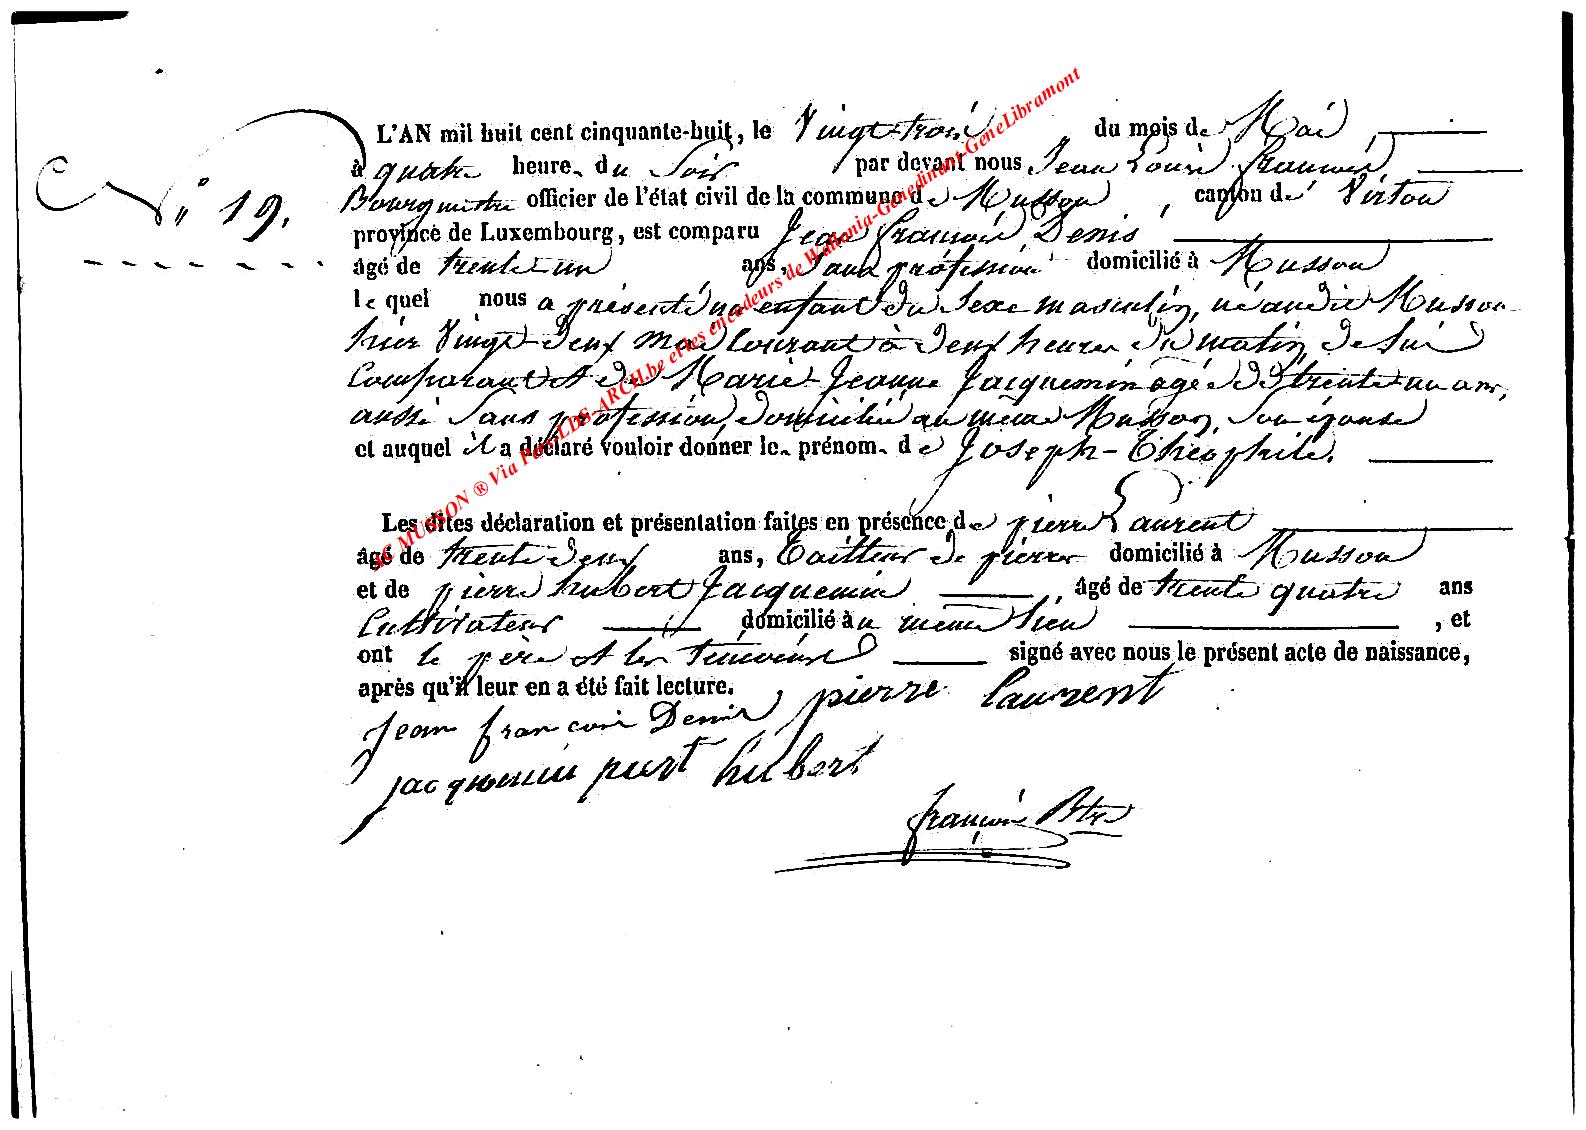 L'AN mil huit cent cinquante-huit, le Vingt-trois du mois de Mai
à quatre heure du Soir par devant nous Jean Louis François
N° 19. Bourgmestre officier de l'état civil de la commune de Musson, canton de Virton
province de Luxembourg, est comparu Jean François Denis
âgé de trente-un ans, Sans profession domicilié à Musson
le quel nous a présenté un enfant du Sexe masculin, né audit Musson
hier Vingt-deux mai Courant à deux heures du matin, de lui
Comparant et de Marie-Jeanne Jacquemin agée de trente-un ans,
aussi Sans profession, domiciliée au même Musson, Son épouse
et auquel il a déclaré vouloir donner le prénom de Joseph-Théophile.
Les dites déclaration et présentation faites en présence de pierre Laurent
âgé de trente deux ans, Tailleur de pierres domicilié à Musson
et de pierre hubert Jacquemin, âgé de trente quatre ans
Cultivateur domicilié au même lieu, et
ont le père et les témoins signé avec nous le présent acte de naissance,
après qu'il leur en a été fait lecture. pierre laurent
Jean françois Denis
jacquemin hubert
françois Btre
AC MUSSON ® Via Fam.LDS-ARCH.be et les encodeurs de Wallonia-Genedinant-GeneLibramont